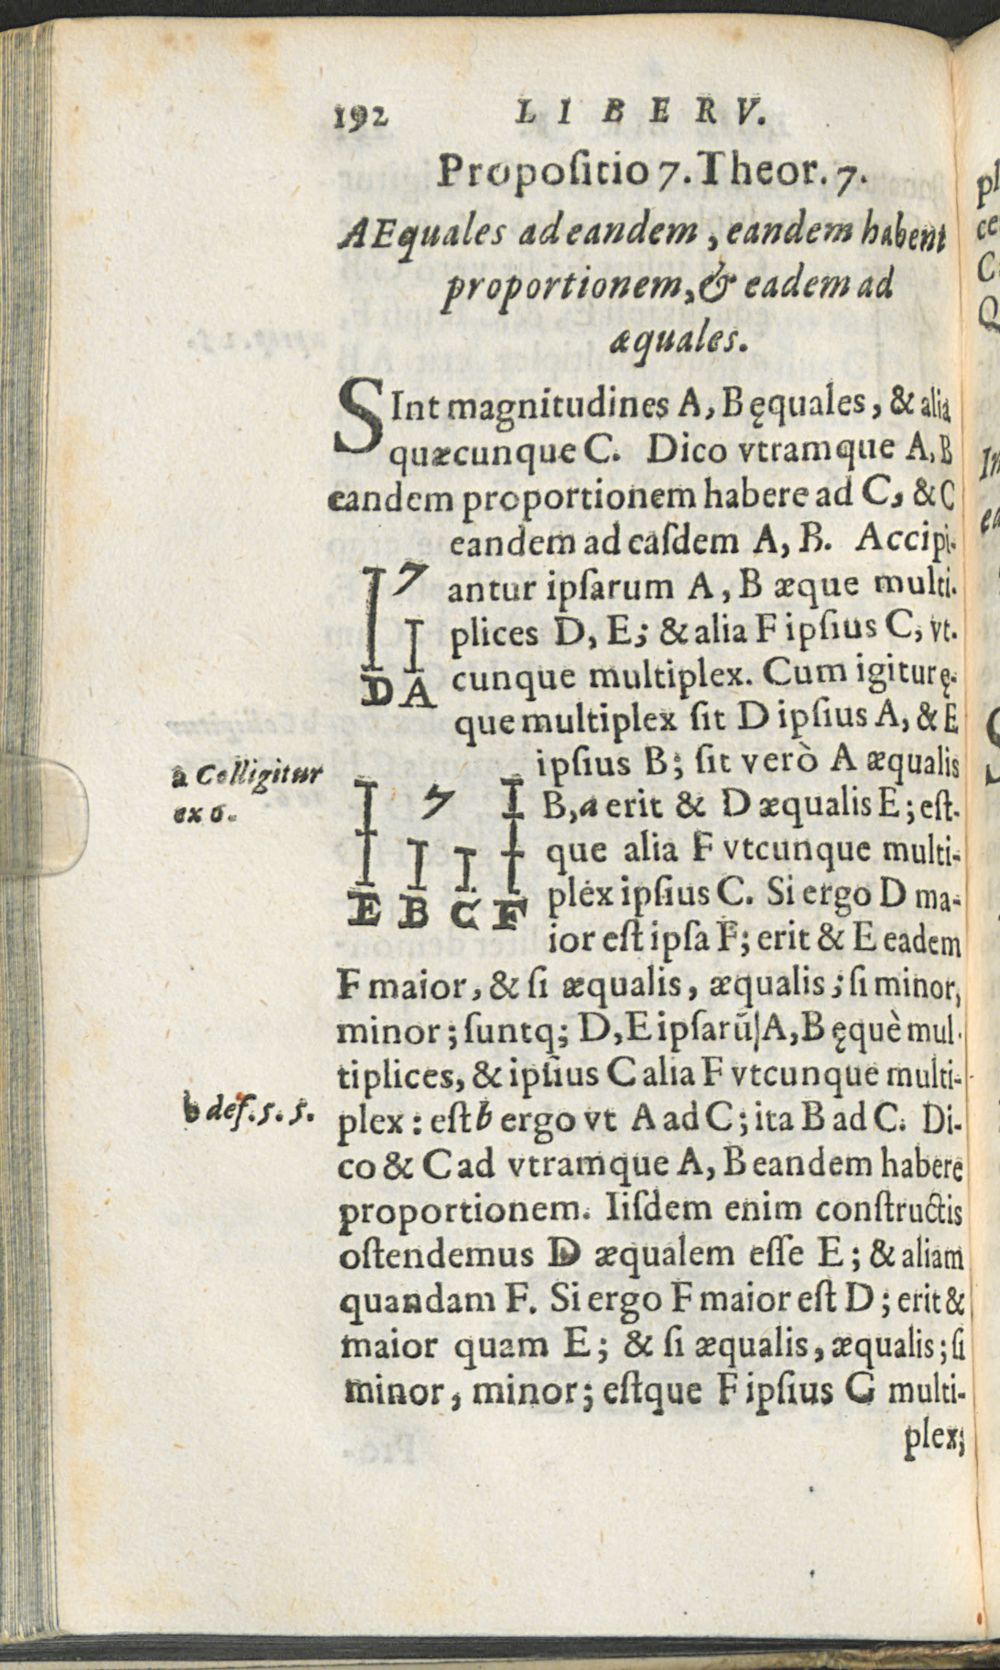 192 LIBER V.
Propoſitio 7. Theor. 7.
AEquales ad eandem, eandem habent
proportionem, & eadem ad
æquales.
SInt magnitudines A, B ęquales, & alia
quæcunque C. Dico vtramque A, B
eandem proportionem habere ad C, & C
eandem ad eaſdem A, B. Accipi-
antur ipſarum A, B æque multi-
plices D, E; & alia F ipſius C, vt-
cunque multiplex. Cum igitur ę-
que multiplex ſit D ipſius A, & E
ipſius B; ſit verò A æqualis
B, a erit & D æqualis E; eſt-
que alia F vtcunque multi-
plex ipſius C. Si ergo D ma-
ior eſt ipſa F; erit & E eadem
F maior, & ſi æqualis, æqualis; ſi minor,
minor; ſuntq; D, E ipſarū A, B ęquè mul-
tiplices, & ipſius C alia F vtcunque multi-
plex: eſt b ergo vt A ad C; ita B ad C. Di-
co & C ad vtramque A, B eandem habere
proportionem. Iiſdem enim conſtructis
oſtendemus D æqualem eſſe E; & aliam
quandam F. Si ergo F maior eſt D; erit &
maior quam E; & ſi æqualis, æqualis; ſi
minor, minor; eſtque F ipſius C multi-
plex;
7
D A
7
E B C F
a Colligitur
ex 6.
b def. 5. 5.